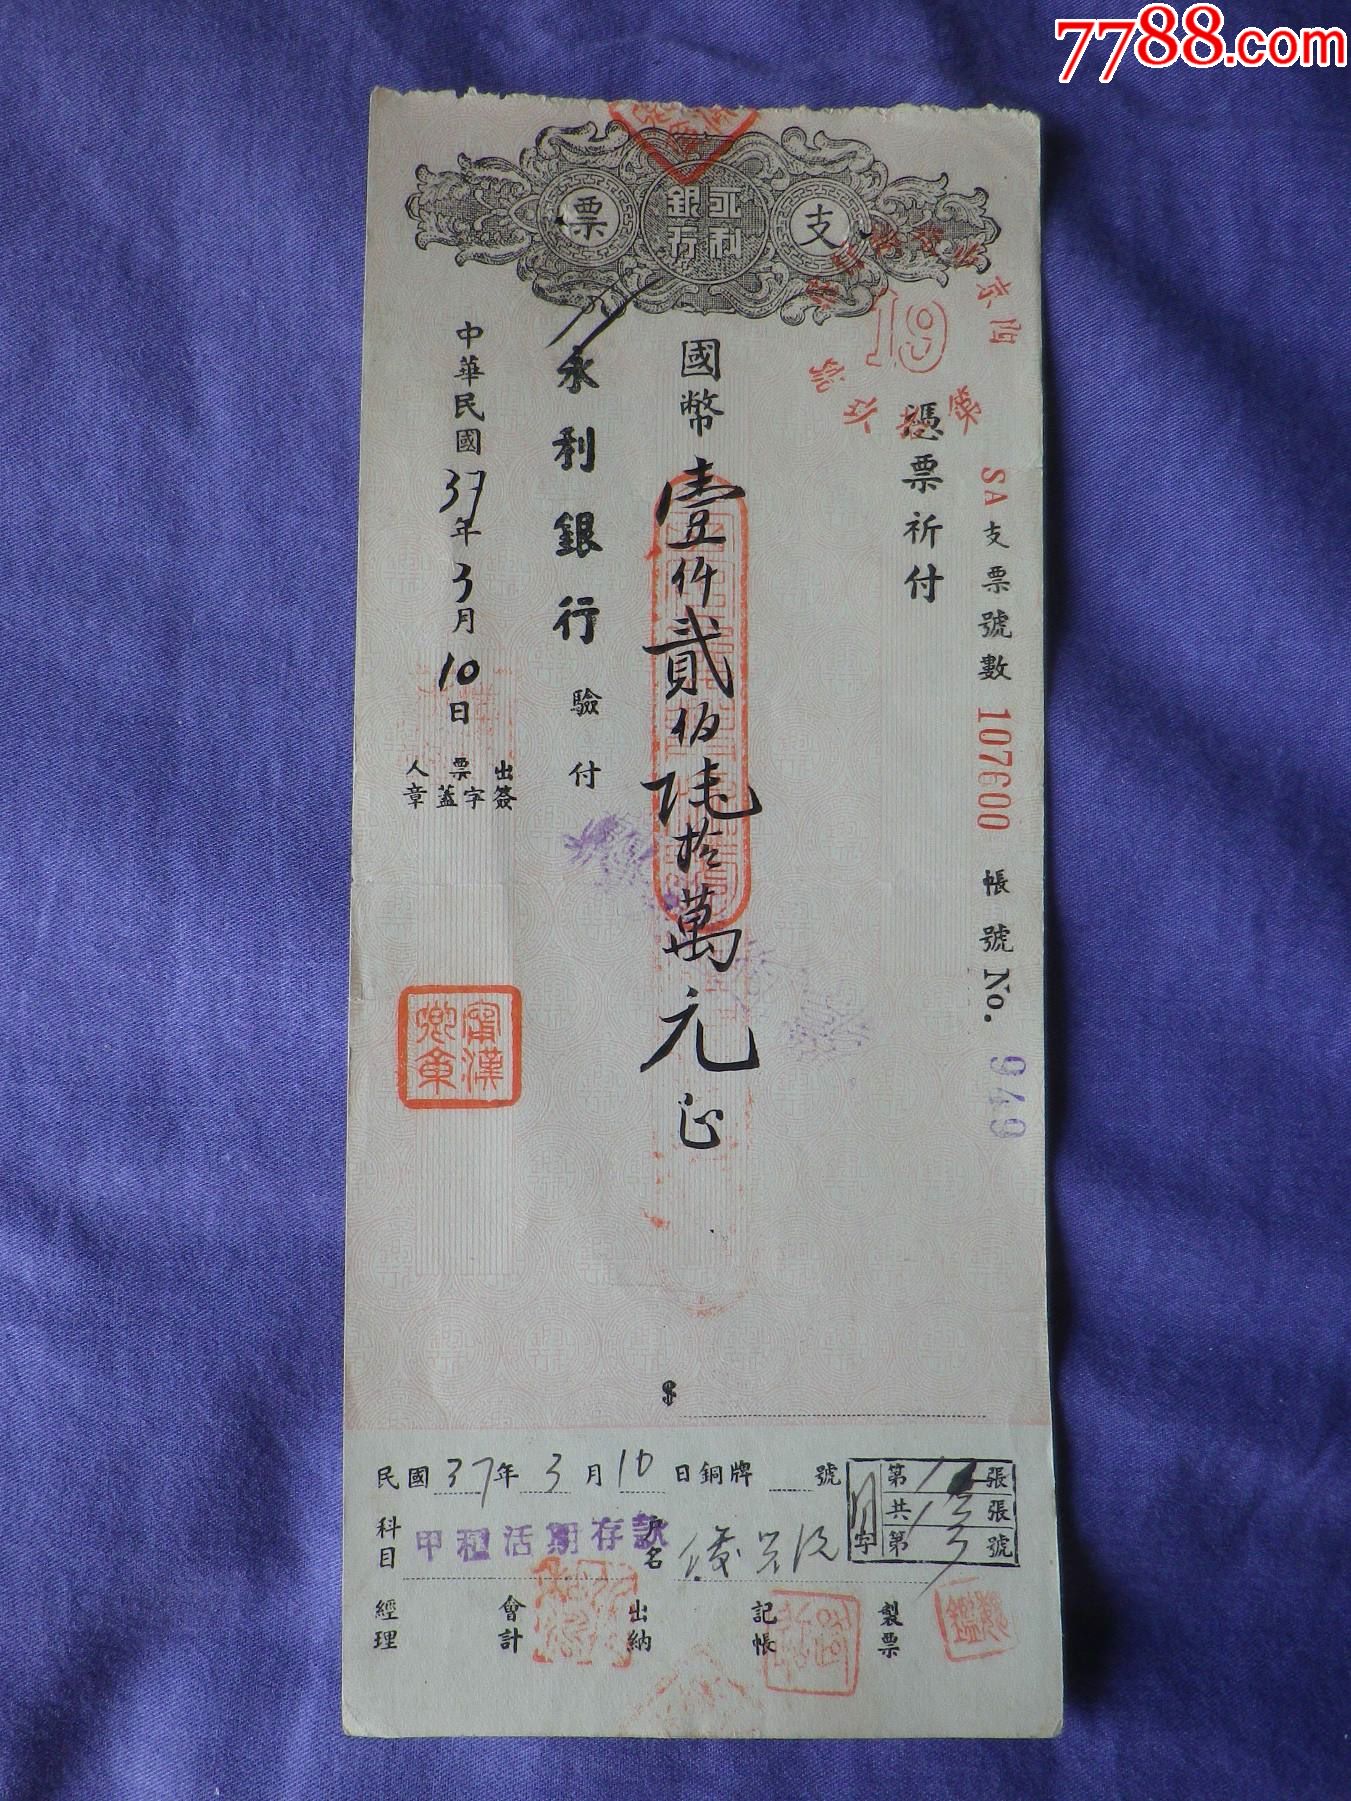 7788.com
支票
永利銀行
19
SA支票號數 107600 帳號No. 949
憑票祈付
國幣壹仟貳佰陸拾萬元正
永利銀行 驗付
中華民國37年3月10日
出票人
簽字蓋章
甯漢卿章
$
民國37年3月10日銅牌 號
第 張
共 張
字第3號
科目 甲種活期存款
戶名
經理 會計 出納 記帳 製票